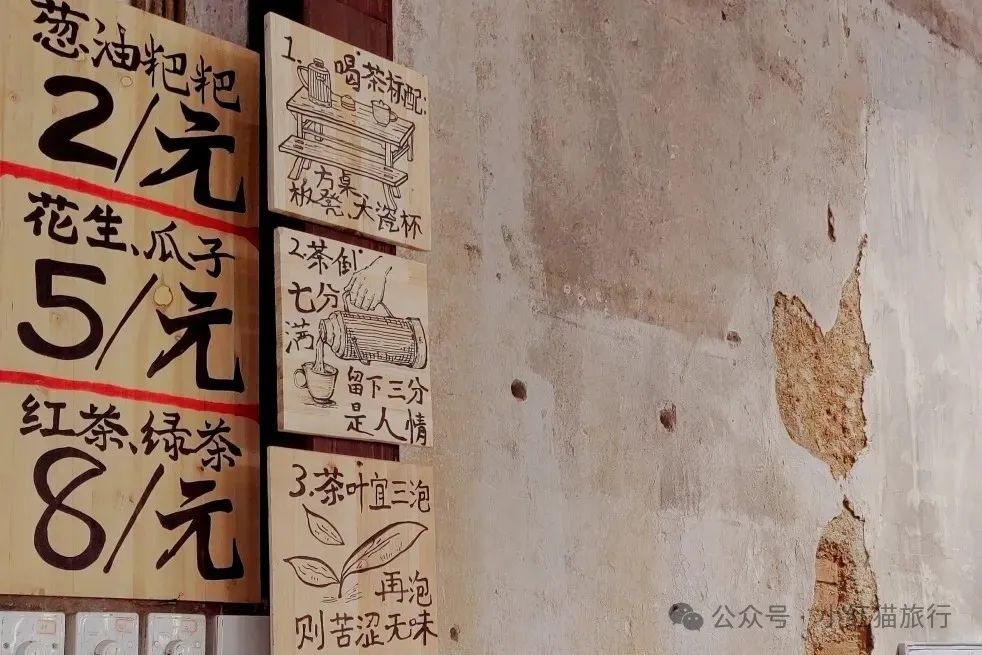 葱油粑粑
2/元
花生、瓜子
5/元
红茶、绿茶
8/元
1. 喝茶标配:
方桌
板凳、大瓷杯
2.茶倒
七分
满
留下三分
是人情
3.茶叶宜三泡
再泡
则苦涩无味
公众号·小红猫旅行